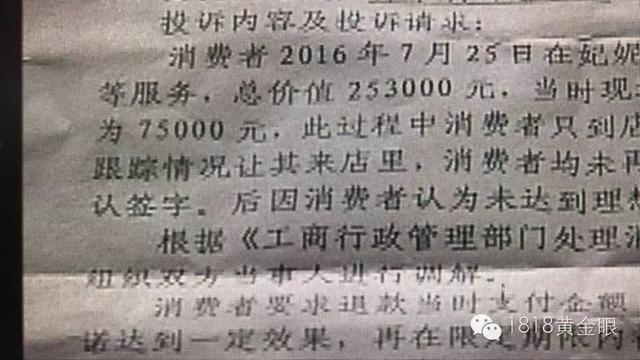 投诉内容及投诉请求：
消费者 2016 年 7 月 25 日在妃妮
等服务，总价值 253000 元，当时现
为 75000 元，此过程中消费者只到店
跟踪情况让其来店里，消费者均未再
认签字。后因消费者认为未达到理想
根据《工商行政管理部门处理消
组织双方当事人进行调解。
消费者要求退款当时支付金额
诺达到一定效果，再在限定期限内
1818黄金眼